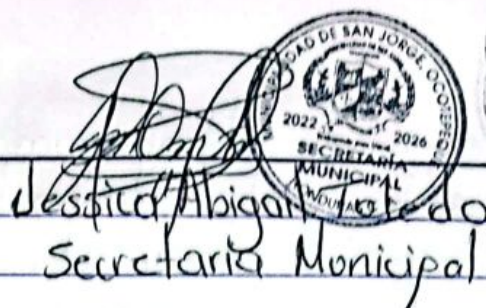 MUNICIPALIDAD DE SAN JORGE, OCOTEPEQUE
2022 2026
SECRETARÍA
MUNICIPAL
HONDURAS
Jessica Abigail Toledo
Secretaria Municipal